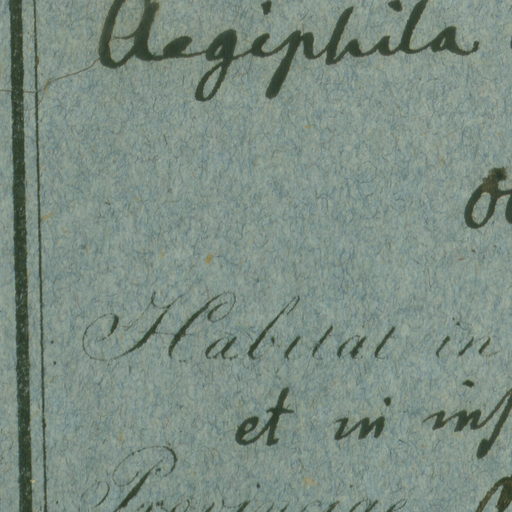 Aegiphila
Habitat in
et in
Provinciae